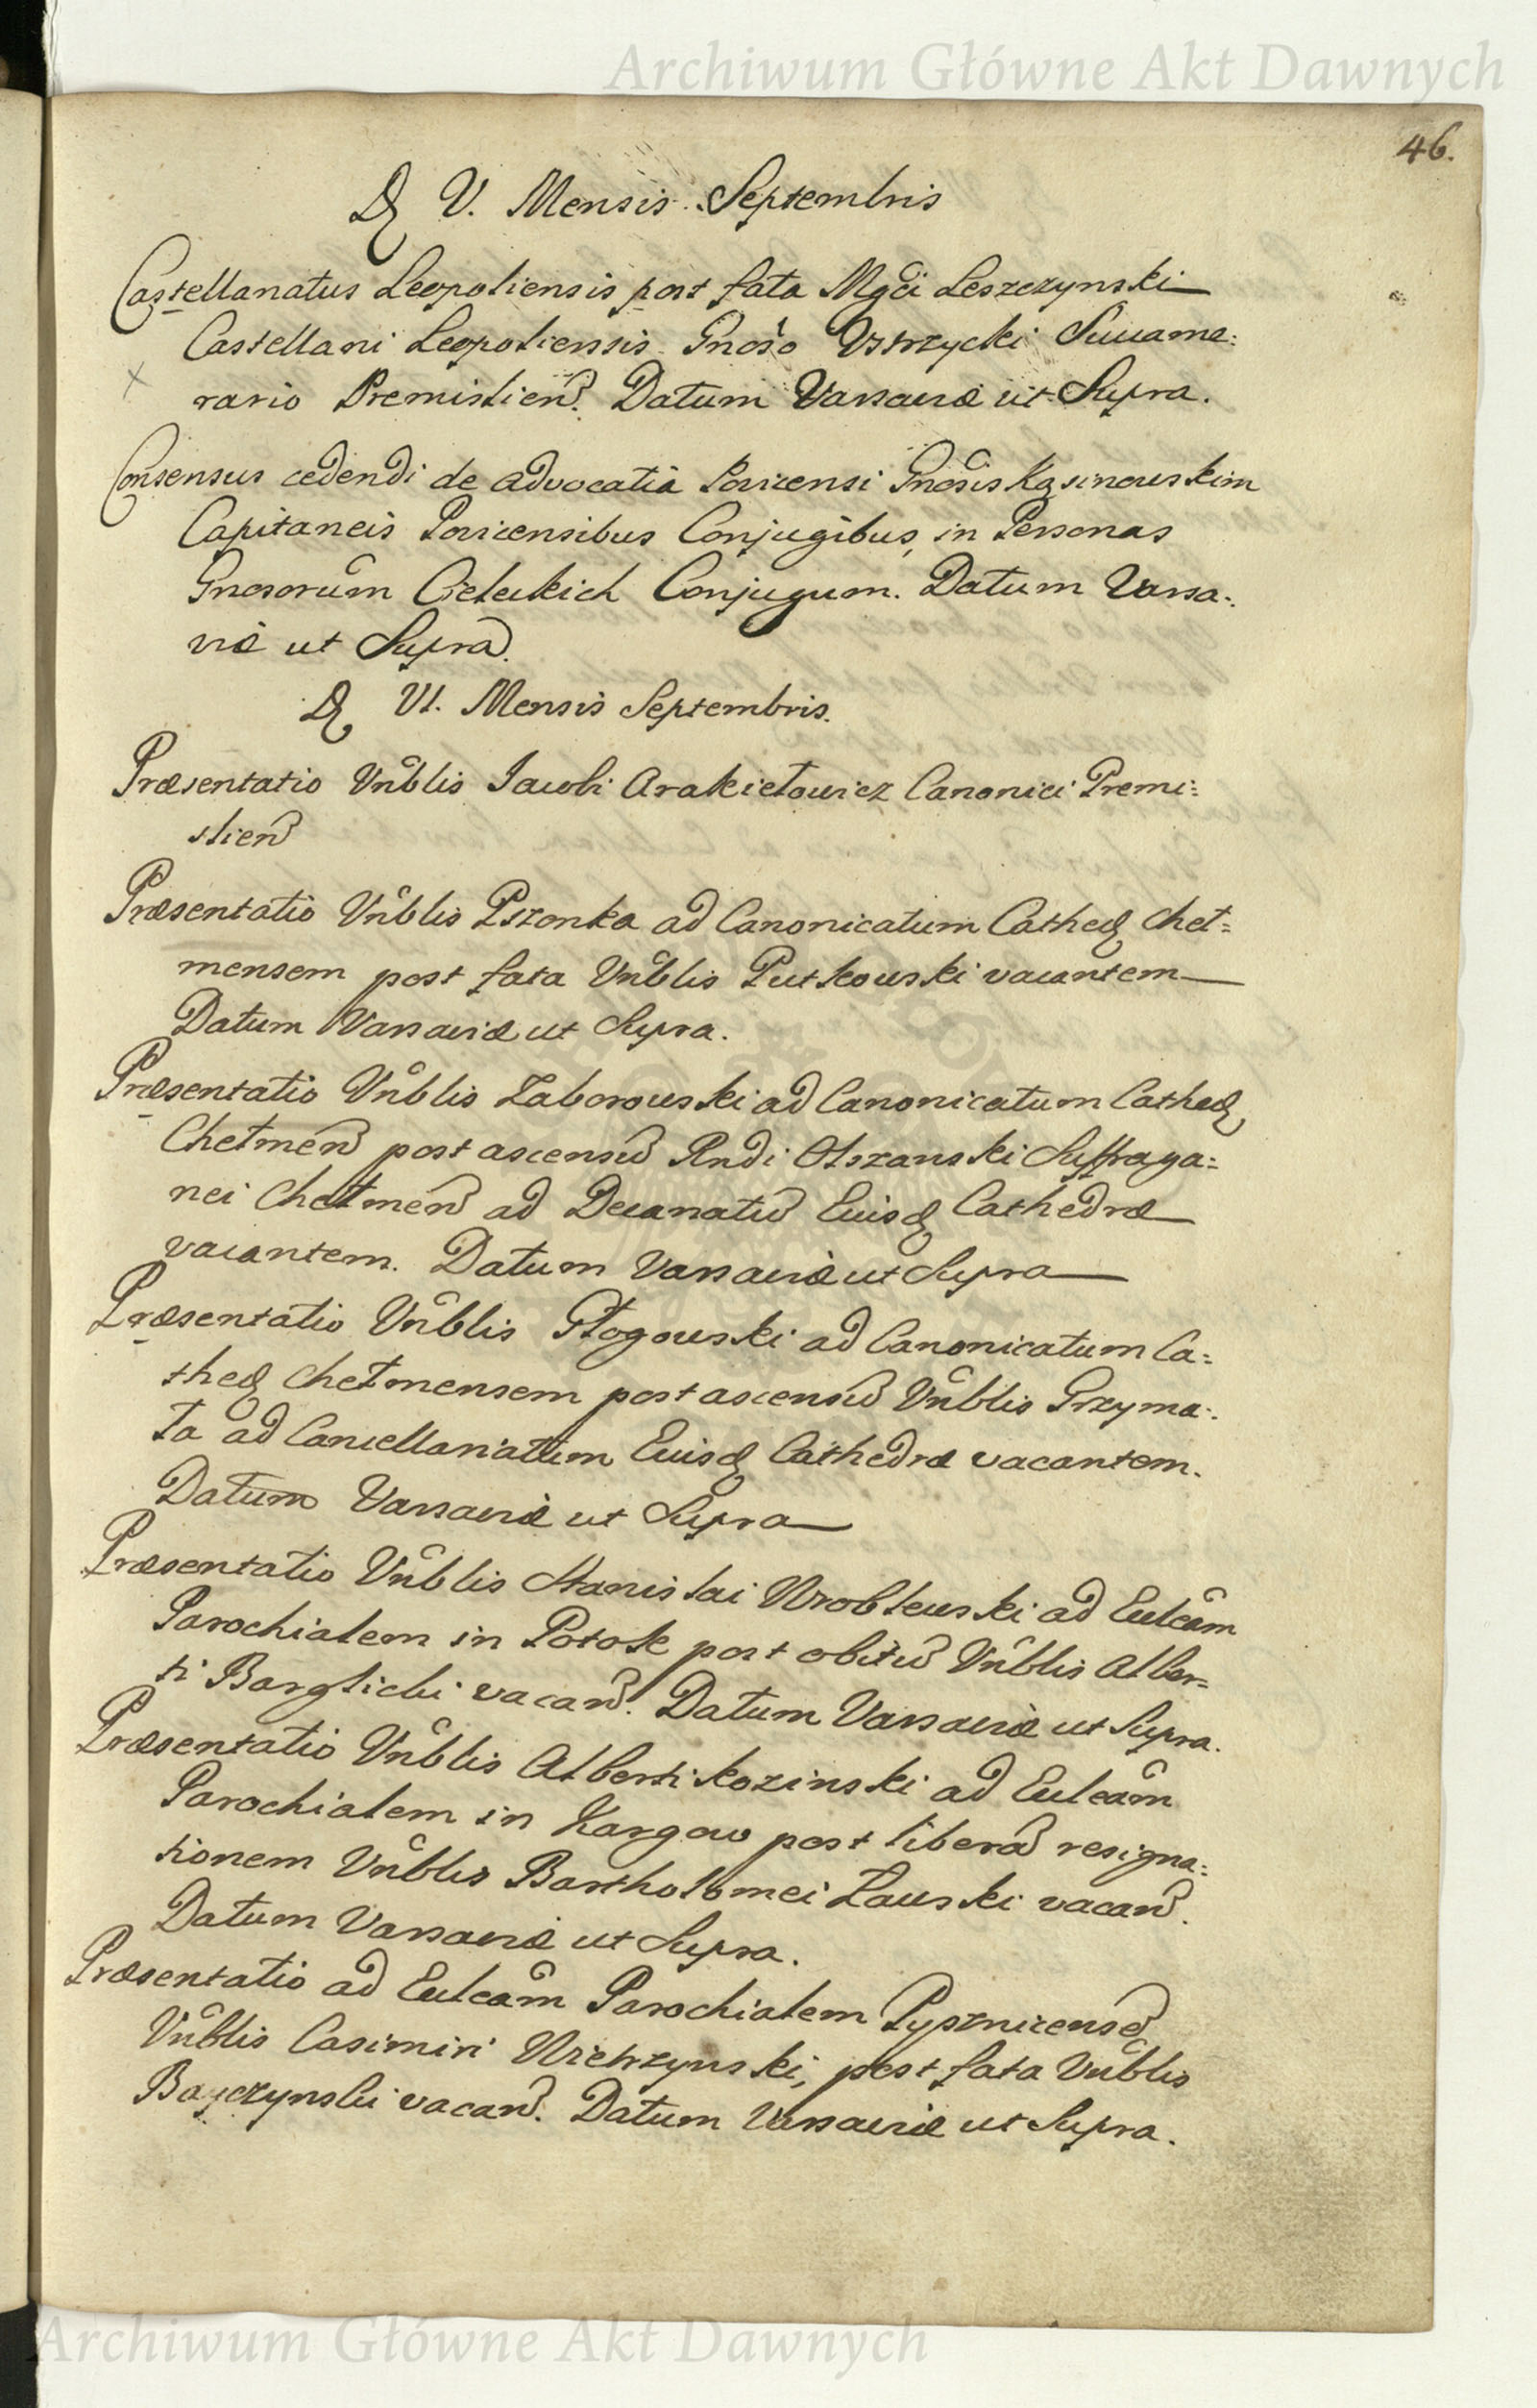 Archiwum Główne Akt Dawnych
46.
D. V. Mensis Septembris
Castellanatus Leopoliensis post fata Mgci Leszczynski
Castellani Leopoliensis Gnoso Ustrzycki Succame:
rario Premislien. Datum Varsaviæ ut Supra.
Consensus cedendi de advocatia Gnosis
Capitaneis Conjugibus, in Personas
Gnosorum Conjugum. Datum Varsa:
viæ ut Supra.
D. VI. Mensis Septembris.
Præsentatio Vnblis Jacobi Arakiełowicz Canonici Premi:
slien
Præsentatio Vnblis Pszonka ad Canonicatum Cathed Cheł:
mensem post fata Vnblis Putkowski vacantem
Datum Varsaviæ ut Supra.
Præsentatio Vnblis Zaborowski ad Canonicatum Cathed
Chełmen post ascensu Rndi Olszanski Suffraga:
nei Chełmen ad Decanatu Eiusd Cathedræ
vacantem. Datum Varsaviæ ut Supra
Præsentatio Vnblis Głogowski ad Canonicatum Ca:
thed Chełmensem post ascensu Vnblis Grzyma:
ła ad Cancellariatum Eiusd Cathedræ vacantem.
Datum Varsaviæ ut Supra
Præsentatio Vnblis Stanislai Wroblewski ad Eccleam
Parochialem in Potok post obitu Vnblis Alber=
ti vacan. Datum Varsaviæ ut Supra.
Præsentatio Vnblis Alberti Kozinski ad Eccleam
Parochialem in Kargow post libera resigna:
tionem Vnblis Bartholomei Zawski vacan.
Datum Varsaviæ ut Supra.
Præsentatio ad Eccleam Parochialem Pysznicense
Vnblis Casimiri Wietrzynski, post fata Vnblis
Bayczynski vacan. Datum Varsaviæ ut Supra.
Archiwum Główne Akt Dawnych